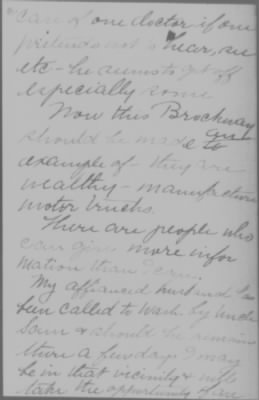 care of one doctor if one
pretends not to hear, an
etc - he seems to get off
especially some
Now this Brockway
should be made an
example of - they are
wealthy - manufacture
motor trucks.
There are people who
can give more infor
mation than I can.
My affianced husband has
been called to Wash. by Uncle
Sam & should he remain
there a few days I may
be in that vicinity & will
take the opportunity of